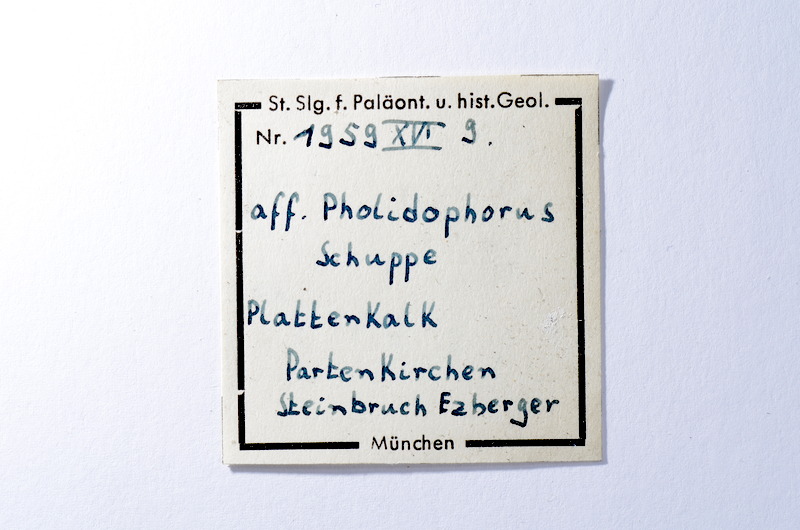 St. Slg. f. Paläont. u. hist. Geol.
Nr. 1959 XVI 9.
aff. Pholidophorus
Schuppe
Plattenkalk
Partenkirchen
Steinbruch Ezberger
München